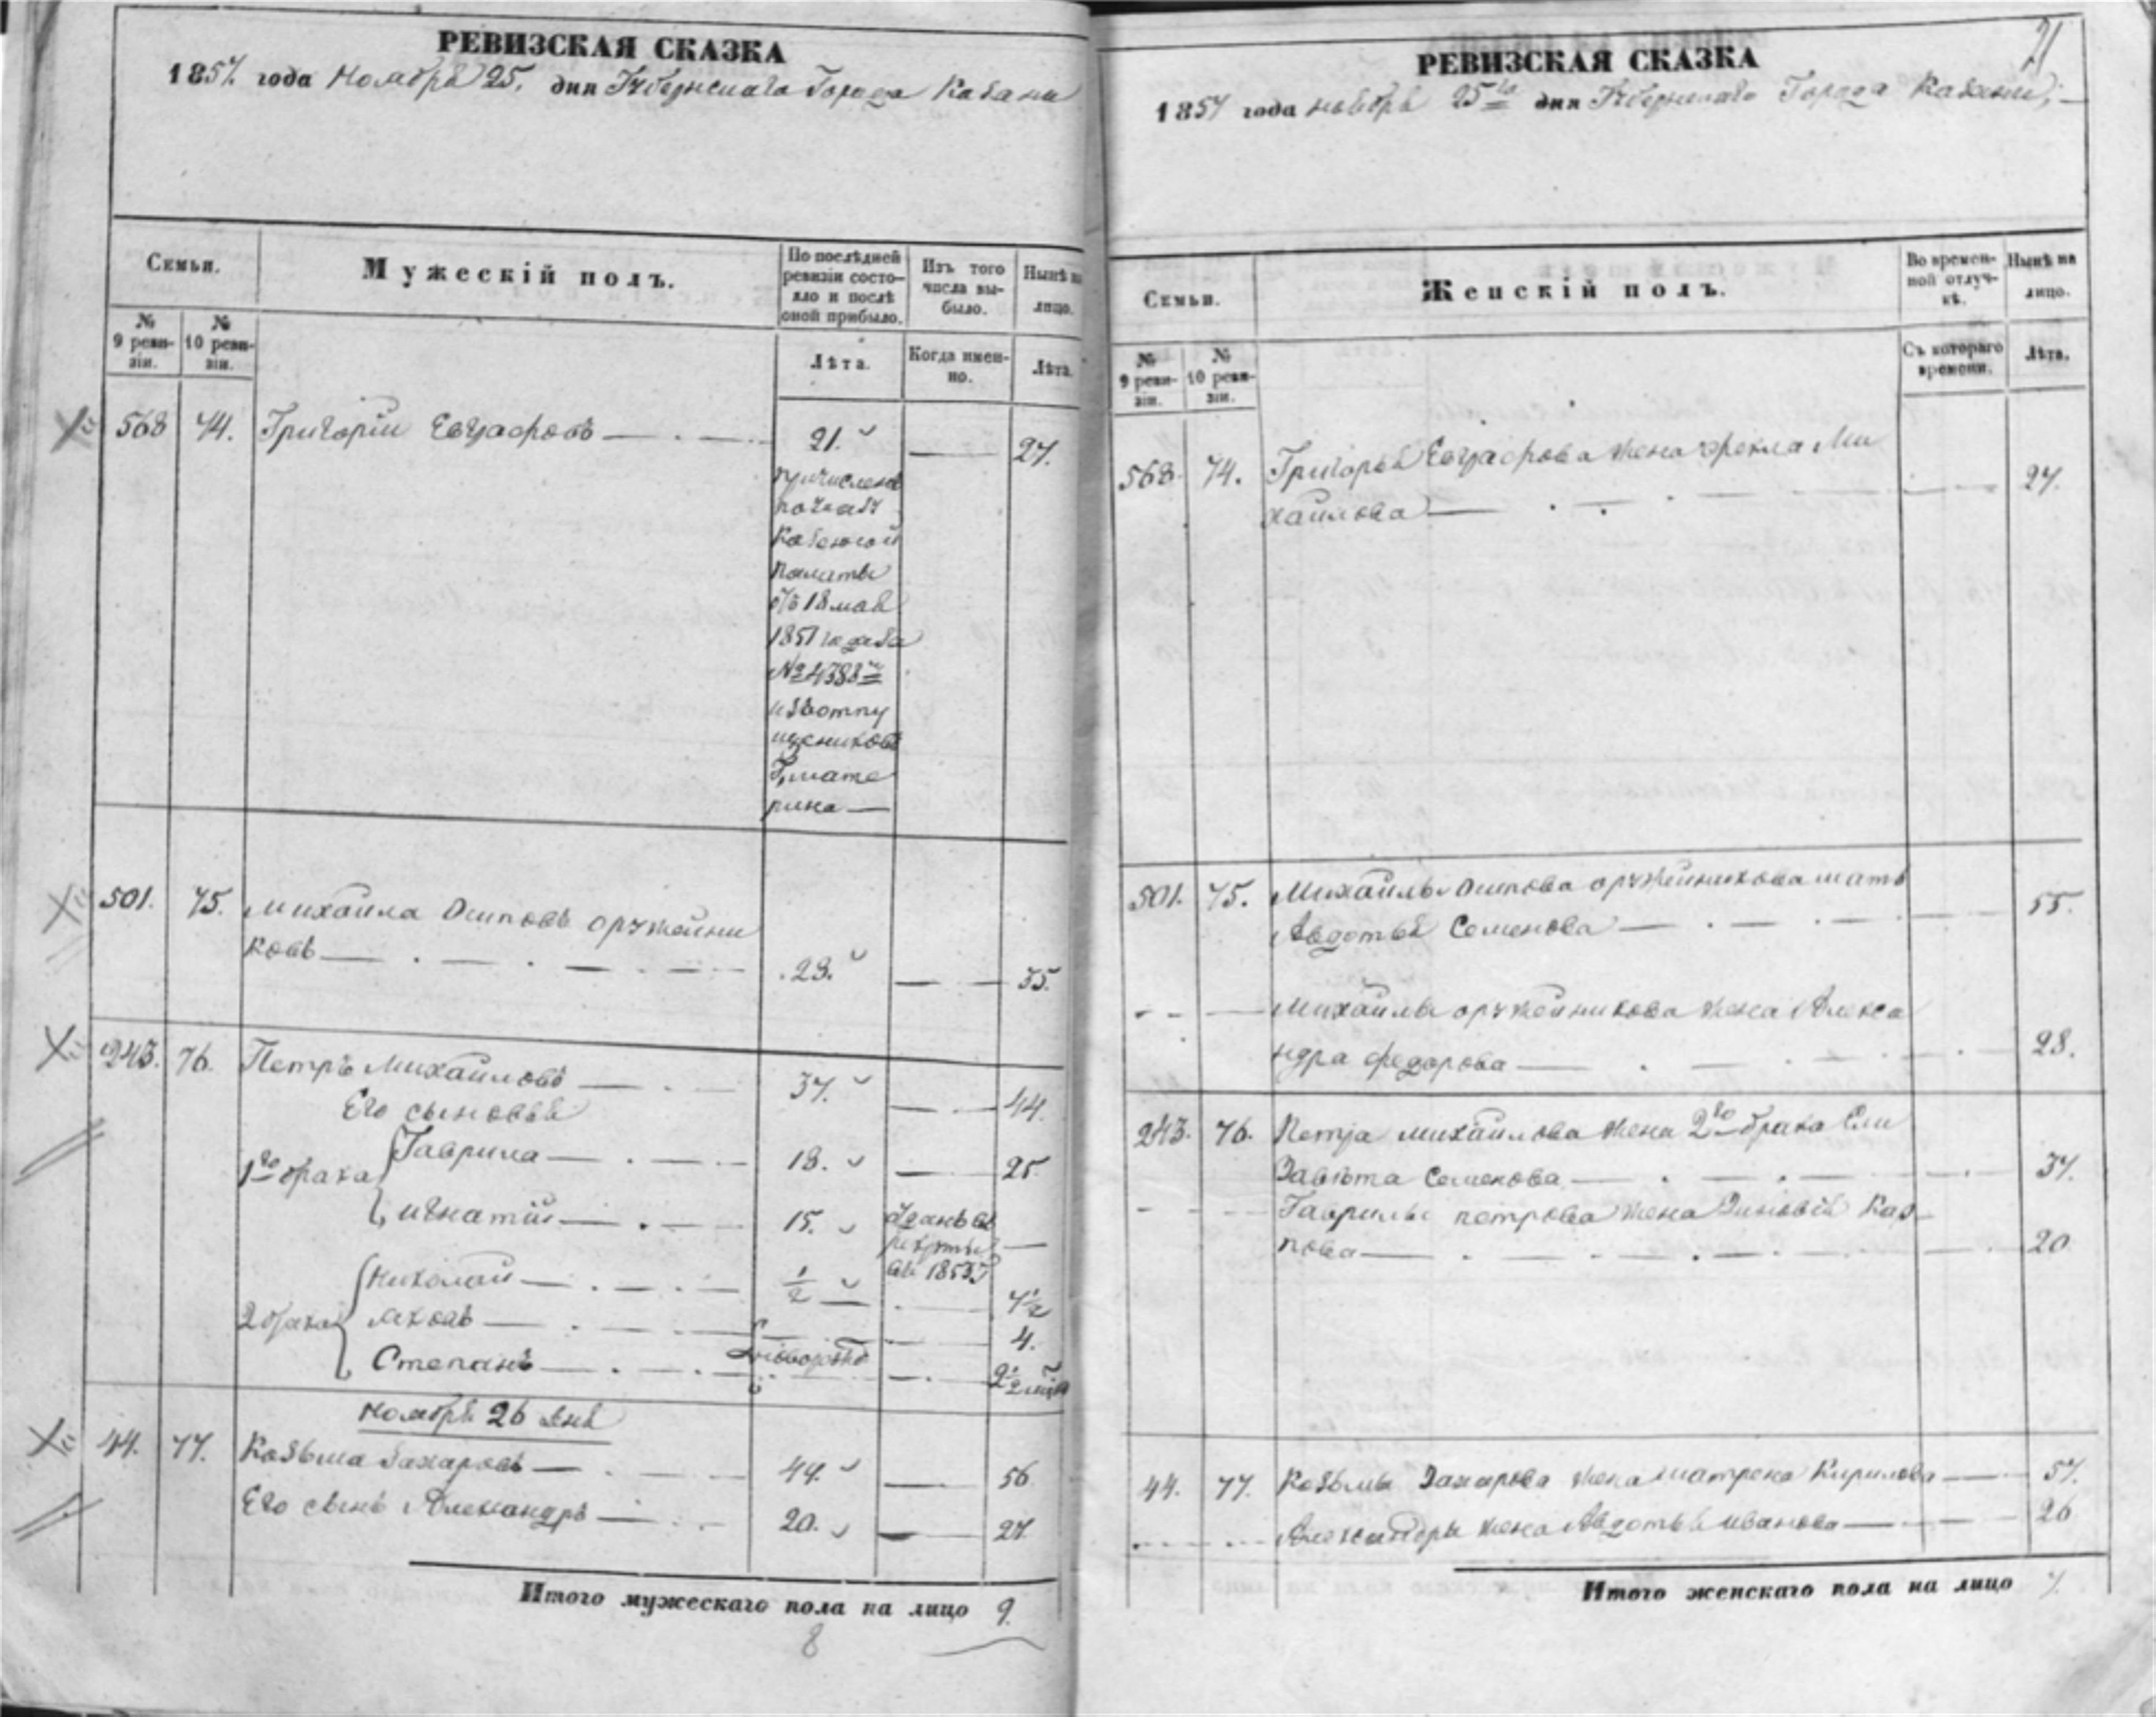 РЕВИЗСКАЯ СКАЗКА
1857 года Ноября 25. дня Губернскаго Города Казани
Семьи.
Мужескій полъ.
По послѣдней ревизіи состояло и послѣ оной прибыло.
Изъ того числа выбыло.
Нынѣ на лицо.
№ 9 ревизіи.
№ 10 ревизіи.
Лѣта.
Когда именно.
Лѣта.
568 74. Григорій Евграфовъ 21. 27.
причисленъ
по указу
Казенной
палаты
отъ 18 мая
1851 года за
№ 4388
изъ отпу
щениковъ
501. 75. Михайла Осиповъ оружейни
ковъ 28. 35.
243. 76. Петръ Михайловъ 37. 44.
Его сыновья
1го брака Гаврила 18. 25.
Игнатій 15. Зданъ въ
рекруты
въ 1853 г
2 брака Николай 1/2 7 1/2
Яковъ 4.
Степанъ новорож 2 1/2 мѣся
Ноября 26 дня
44. 77. Козьма Захаровъ 49. 56
Его сынъ Александръ 20. 27.
Итого мужескаго пола на лицо 9.
8
21
РЕВИЗСКАЯ СКАЗКА
1857 года ноября 25го дня Губернскаго Города Казани
Семьи.
Женскій полъ.
Во временной отлучкѣ.
Нынѣ на лицо.
№ 9 ревизіи.
№ 10 ревизіи.
Съ котораго времени.
Лѣта.
568. 74. Григорья Евграфова жена Фекла Ми
хайлова 27.
501. 75. Михайлы Осипова оружейникова мать
Авдотья Семенова 55.
Михайлы оружейникова жена Алекса
ндра федорова 28.
243. 76. Петра михайлова жена 2го брака Ели
завѣта Семенова 37.
Гаврилы петрова жена Зиновья Кар
пова 20
44. 77. Козьмы Захарова жена матрена Кирилова 57.
Александры жена Авдотья иванова 26
Итого женскаго пола на лицо 7.